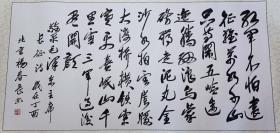 紅軍不怕遠
征難萬水千山
只等閑五嶺逶
迤騰細浪烏蒙
磅礴走泥丸金
沙水拍雲崖暖
大渡橋横鐵索
寒更喜岷山千
里雪三軍過後
盡開顔
毛澤東主席
長征詩 歲在丁酉
北京楊春長書